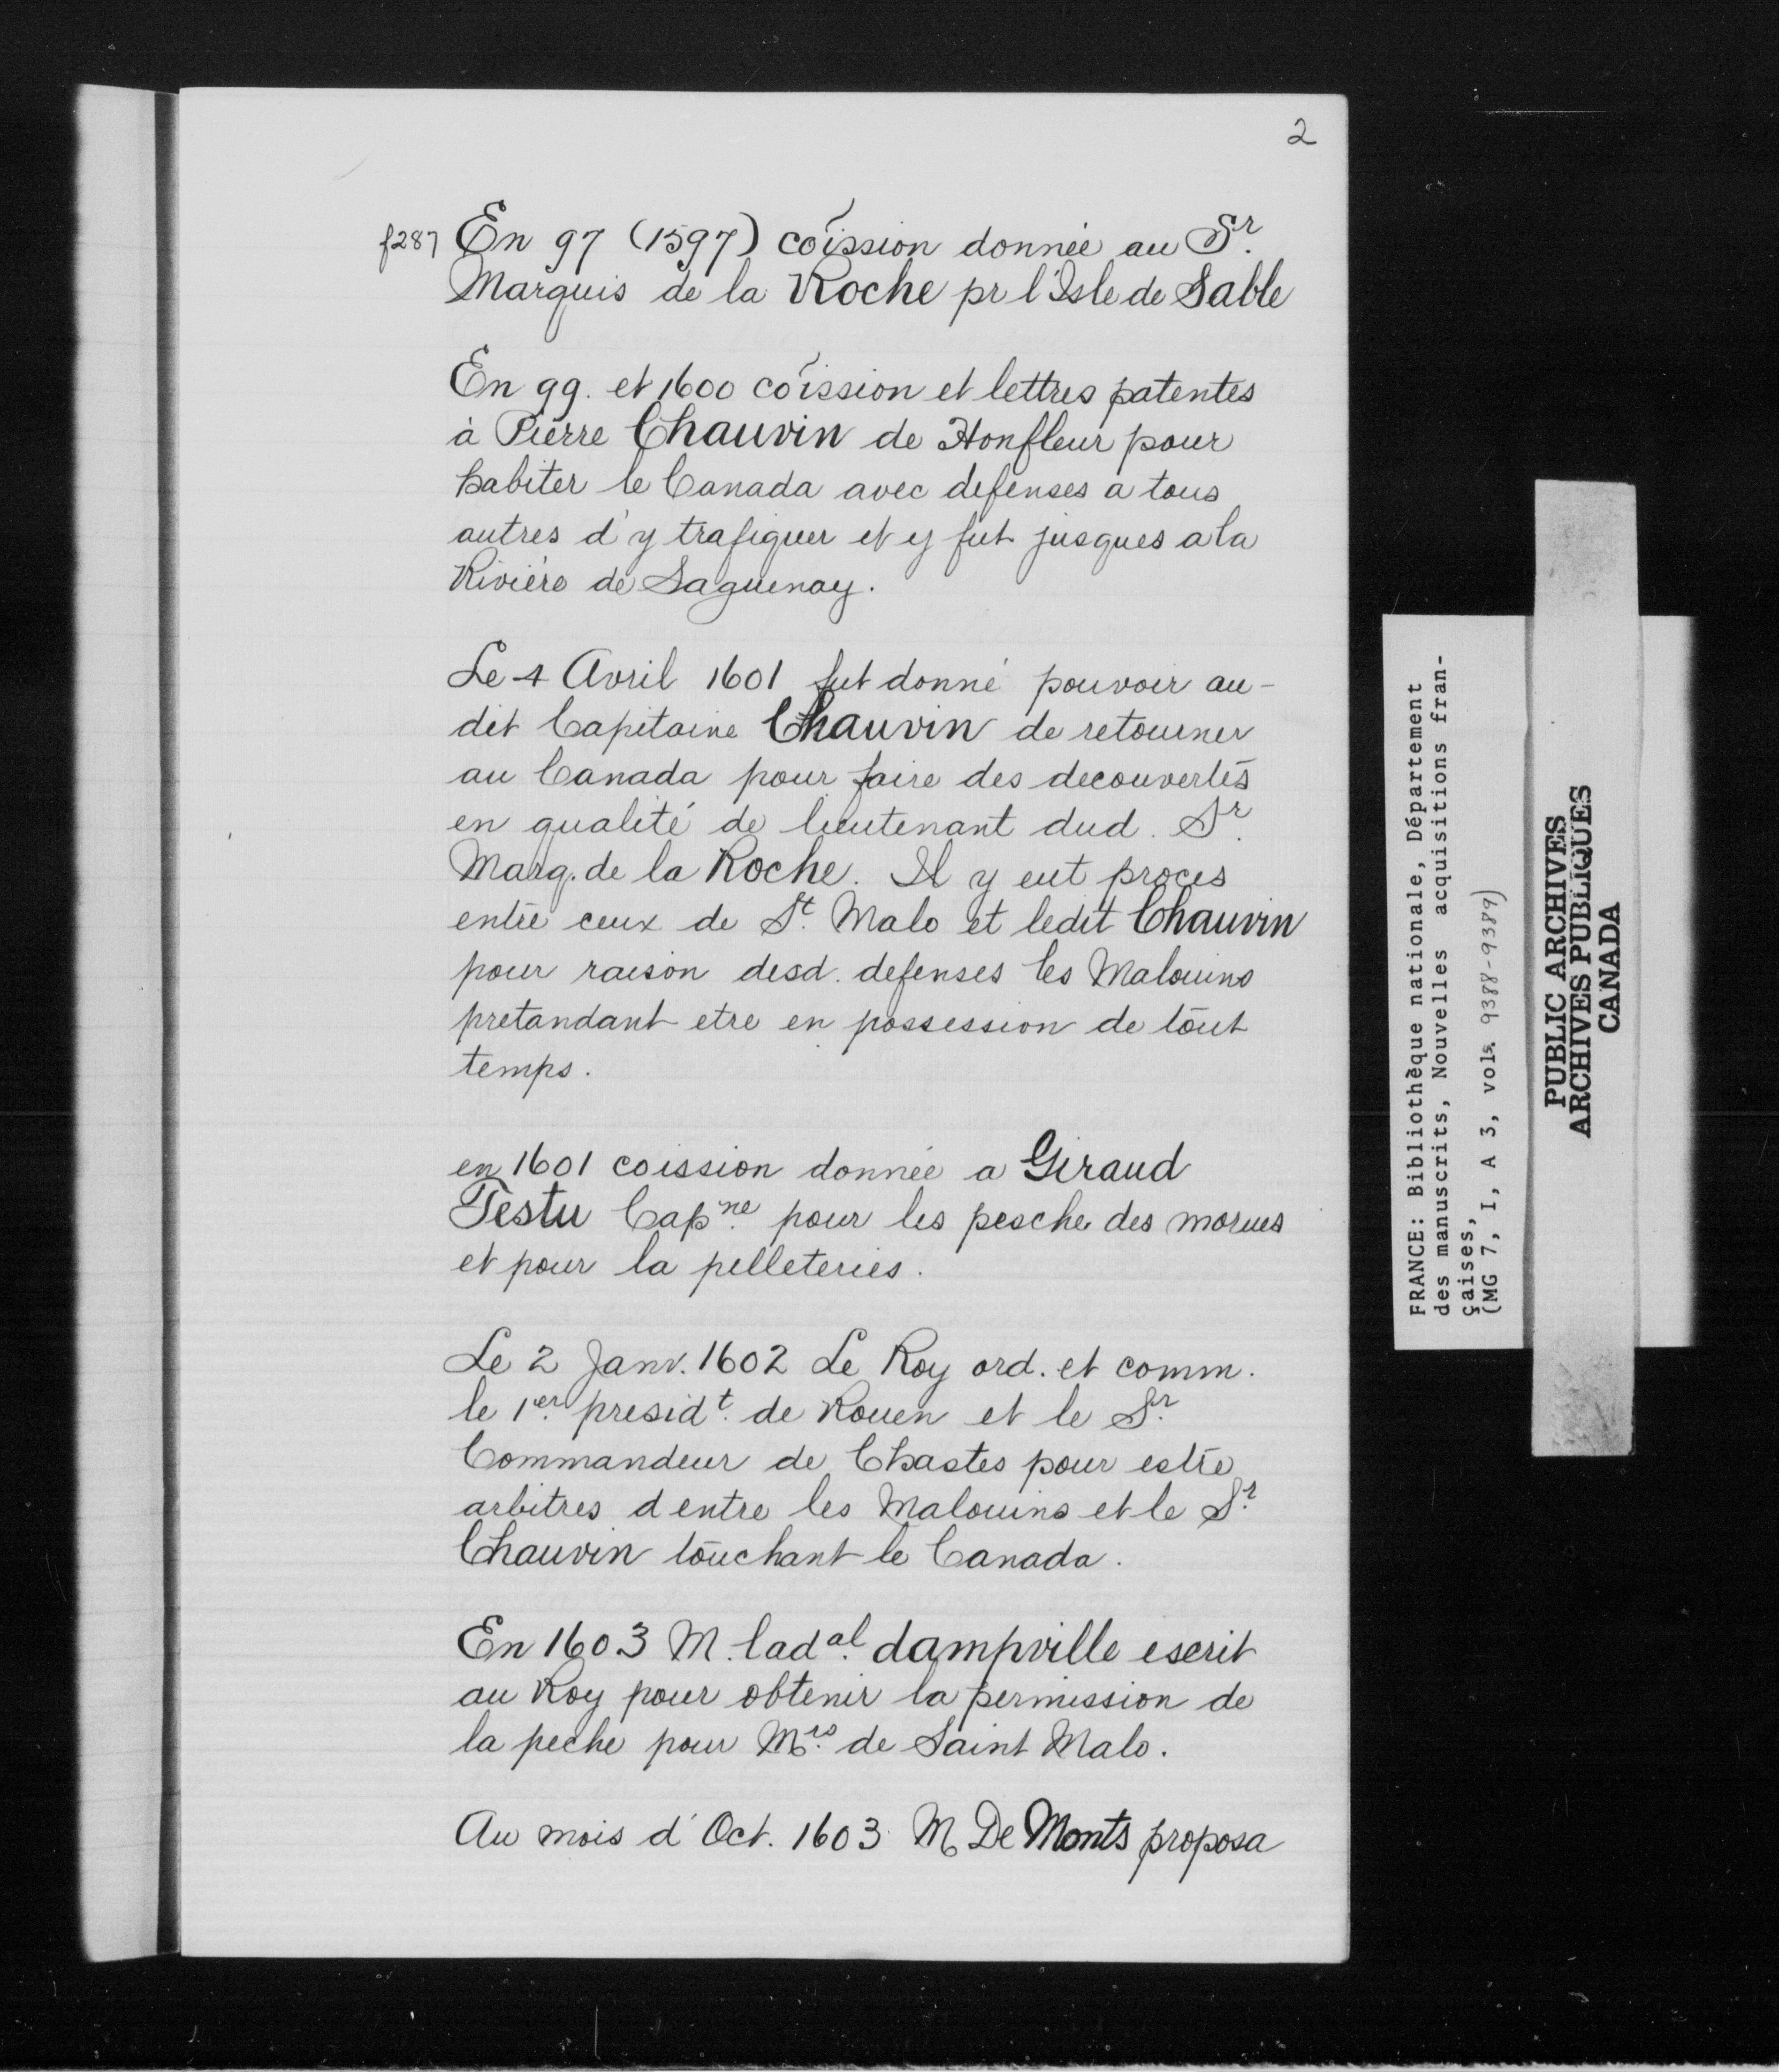 2
f287 En 97 (1597) coĩssion donnée au Sr.
Marquis de la Roche pr l'Isle de Sable
En 99. et 1600 coĩssion et lettres patentes
à Pierre Chauvin de Honfleur pour
habiter le Canada avec defenses a tous
autres d'y trafiquer et y fut jusques a la
Rivière de Saguenay.
Le 4 Avril 1601 fut donné pouvoir au-
dit Capitaine Chauvin de retourner
au Canada pour faire des decouvertes
en qualité de lieutenant dud. Sr.
Marq. de la Roche. Il y eut proces
entre ceux de St. Malo et ledit Chauvin
pour raison desd. defenses les Malouins
pretandant etre en possession de tout
temps.
en 1601 coission donnée a Giraud
Testu Capne. pour les pesche des morues
et pour la pelleteries.
Le 2 Janv. 1602 Le Roy ord. et comm.
le 1er. presidt. de Rouen et le Sr.
Commandeur de Chastes pour estre
arbitres d entre les Malouins et le Sr.
Chauvin touchant le Canada.
En 1603 M. ladal. dampville escrit
au Roy pour obtenir la permission de
la peche pour Mrs. de Saint Malo.
Au mois d'Oct. 1603 M De Monts proposa
FRANCE: Bibliothèque nationale, Département
des manuscrits, Nouvelles acquisitions fran-
çaises,
(MG 7, I, A 3, vols. 9388-9389)
PUBLIC ARCHIVES
ARCHIVES PUBLIQUES
CANADA